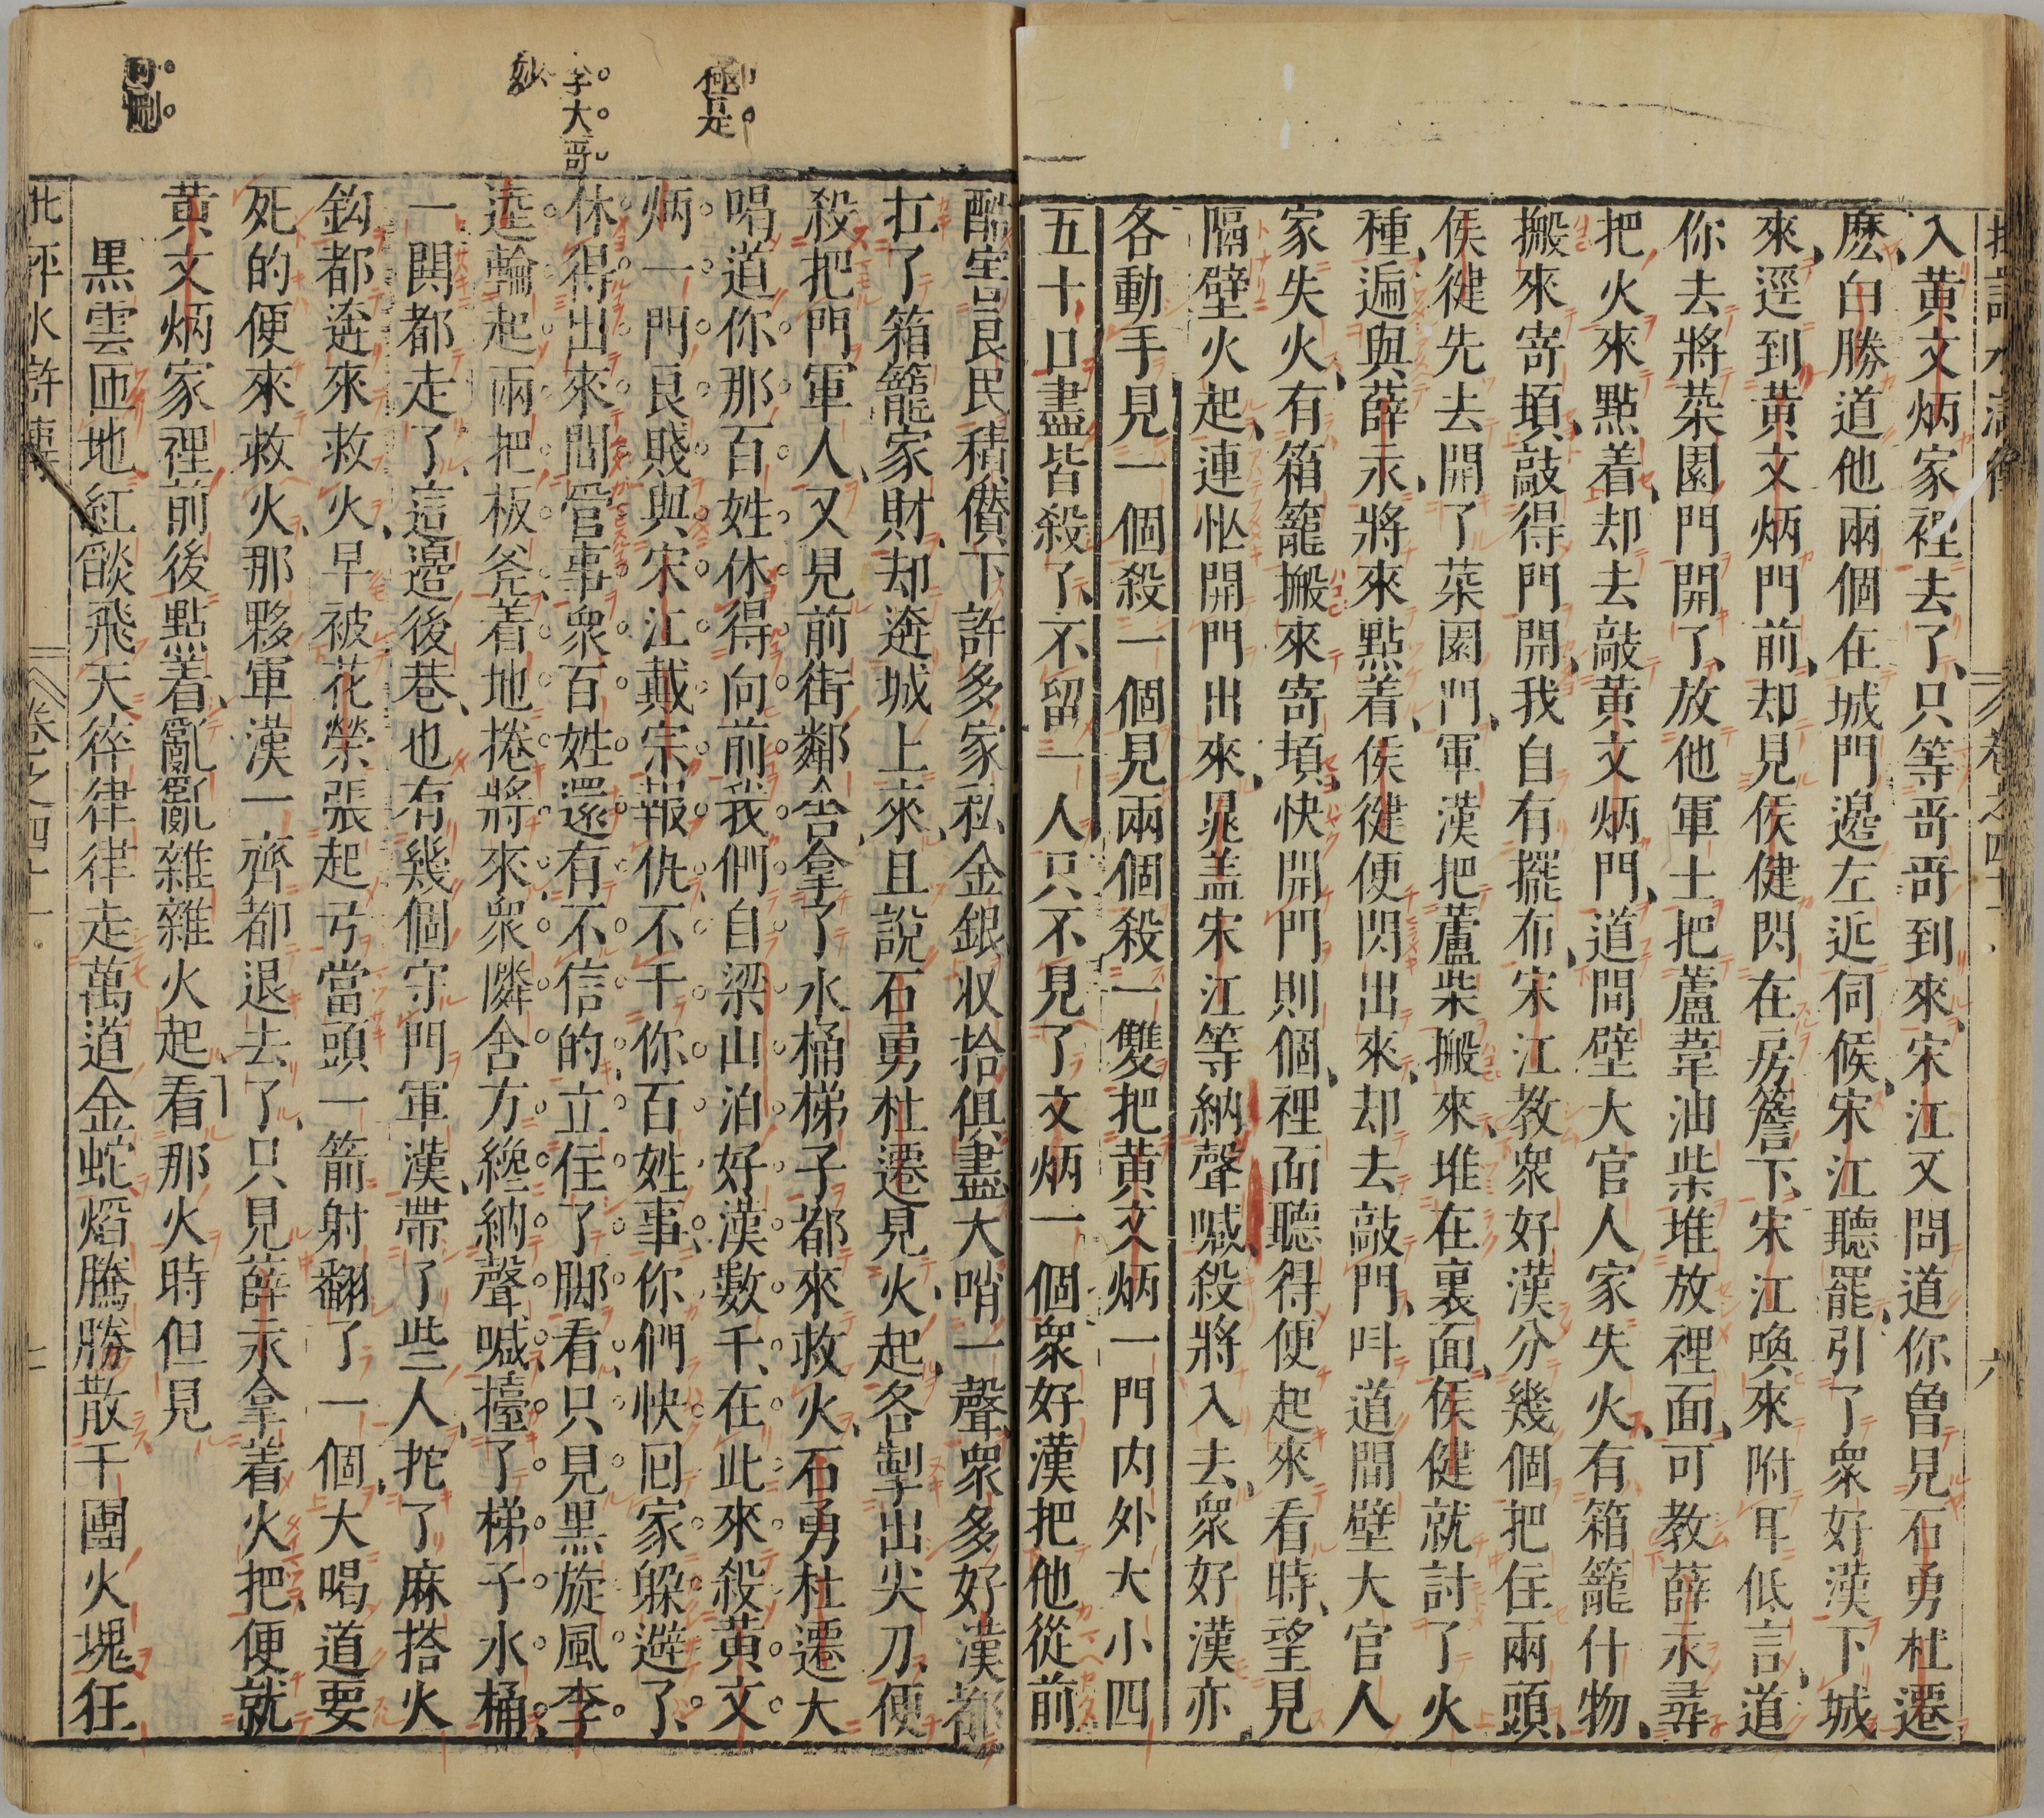 入黃文炳家裡去了只等哥哥到來宋江又問道你曾見石勇杜遷
麽白勝道他兩個在城門邊左近伺候宋江聽罷引了衆好漢下城
來逕到黃文炳門前却見侯健閃在房簷下宋江喚來附耳低言道
你去將菜園門開了放他軍士把蘆葦油柴堆放裡面可教薛永尋
把火來點着却去敲黃文炳門道間壁大官人家失火有箱籠什物
搬來寄頓敲得門開我自有擺布宋江教衆好漢分幾個把住兩頭
侯健先去開了菜園門軍漢把蘆柴搬來堆在裏面侯健就討了火
種遞與薛永將來點着侯健便閃出來却去敲門叫道間壁大官人
家失火有箱籠搬來寄頓快開門則個裡面聽得便起來看時望見
隔壁火起連忙開門出來晁盖宋江等納聲喊殺將入去衆好漢亦
各動手見一個殺一個見兩個殺一雙把黃文炳一門内外大小四
五十口盡皆殺了不留一人只不見了文炳一個衆好漢把他從前
酷害良民積儹下許多家私金銀収拾俱盡大哨一聲衆多好漢都
扛了箱籠家財却逩城上來且說石勇杜遷見火起各掣出尖刀便
殺把門軍人又見前街鄰舎拿了水桶梯子都來救火石勇杜遷大
喝道你那百姓休得向前我們自梁山泊好漢數千在此來殺黃文
炳一門良賤與宋江戴宗報仇不干你百姓事你們快囘家躲避了
休得出來閒管事衆百姓還有不信的立住了脚看只見黒旋風李
逵輪起兩把板斧着地捲將來衆隣舍方纔納聲喊擡了梯子水桶
一閧都走了這邊後巷也有幾個守門軍漢帶了些人挓了麻搭火
鈎都逩來救火早被花榮張起弓當頭一箭射翻了一個大喝道要
死的便來救火那夥軍漢一齊都退去了只見薛永拿着火把便就
黃文炳家裡前後點着亂亂雜雜火起看那火時但見
黒雲匝地紅燄飛天㷮律律走萬道金蛇焰騰騰散千團火塊狂
批評水滸傳
卷之四十一
極是
李大哥
妙
可刪
卷之四十一
六